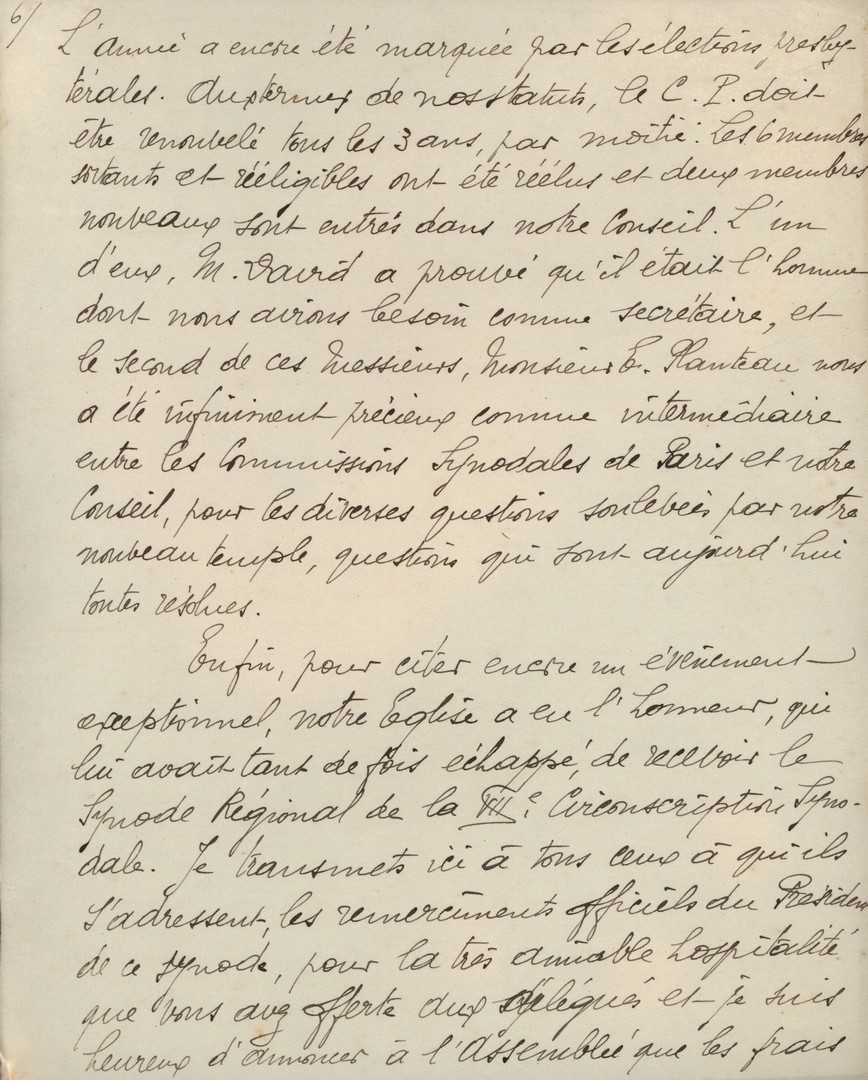 6/
L'année a encore été marquée par les élections presby-
térales. Aux termes de nos statuts, le C. P. doit
être renouvelé tous les 3 ans, par moitié. Les 6 membres
sortants et rééligibles ont été réélus et deux membres
nouveaux sont entrés dans notre Conseil. L'un
d'eux, M. David a prouvé qu'il était l'homme
dont nous avions besoin comme secrétaire, et
le second de ces Messieurs, Monsieur E. Planteau nous
a été infiniment précieux comme intermédiaire
entre les Commissions Synodales de Paris et notre
Conseil, pour les diverses questions soulevées par notre
nouveau temple, questions qui sont aujourd'hui
toutes résolues.
Enfin, pour citer encore un événement
exceptionnel, notre Eglise a eu l'honneur, qui
lui avait tant de fois échappé, de recevoir le
Synode Régional de la VIIe Circonscription Syno-
dale. Je transmets ici à tous ceux à qui ils
s'adressent, les remerciments officiels du Président
de ce synode, pour la très aimable hospitalité
que vous avez offerte aux délégués et je suis
heureux d'annoncer à l'Assemblée que les frais